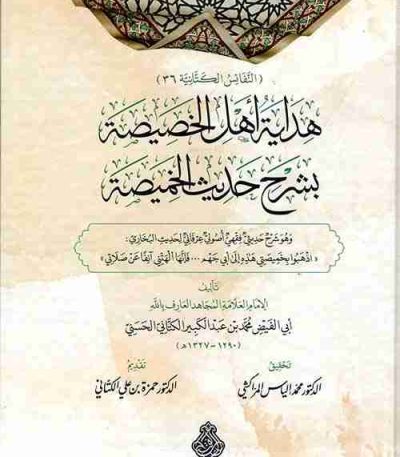 (النَّفَائِسُ الكَتَّانِيَّة ٣٦)
هِدَايَةُ أَهْلِ الخَصِيصَة
بِشَرْحِ حَدِيثِ الخَمِيصَة
وَهُوَ شَرْحٌ حَدِيثِيٌّ فِقْهِيٌّ أُصُولِيٌّ عِرْفَانِيٌّ لِحَدِيثِ البُخَارِيّ:
«اذْهَبُوا بِخَمِيصَتِي هَذِهِ إِلَى أَبِي جَهْمٍ ... فَإِنَّهَا أَلْهَتْنِي آنِفًا عَنْ صَلَاتِي»
تأليف
الإمام العلامة المجاهد العارف بالله
أبي الفيض محمد بن عبد الكبير الكتاني الحسني
(١٢٩٠-١٣٢٧هـ)
تحقيق
الدكتور محمد إلياس المراكشي
تقديم
الدكتور حمزة بن علي الكتاني